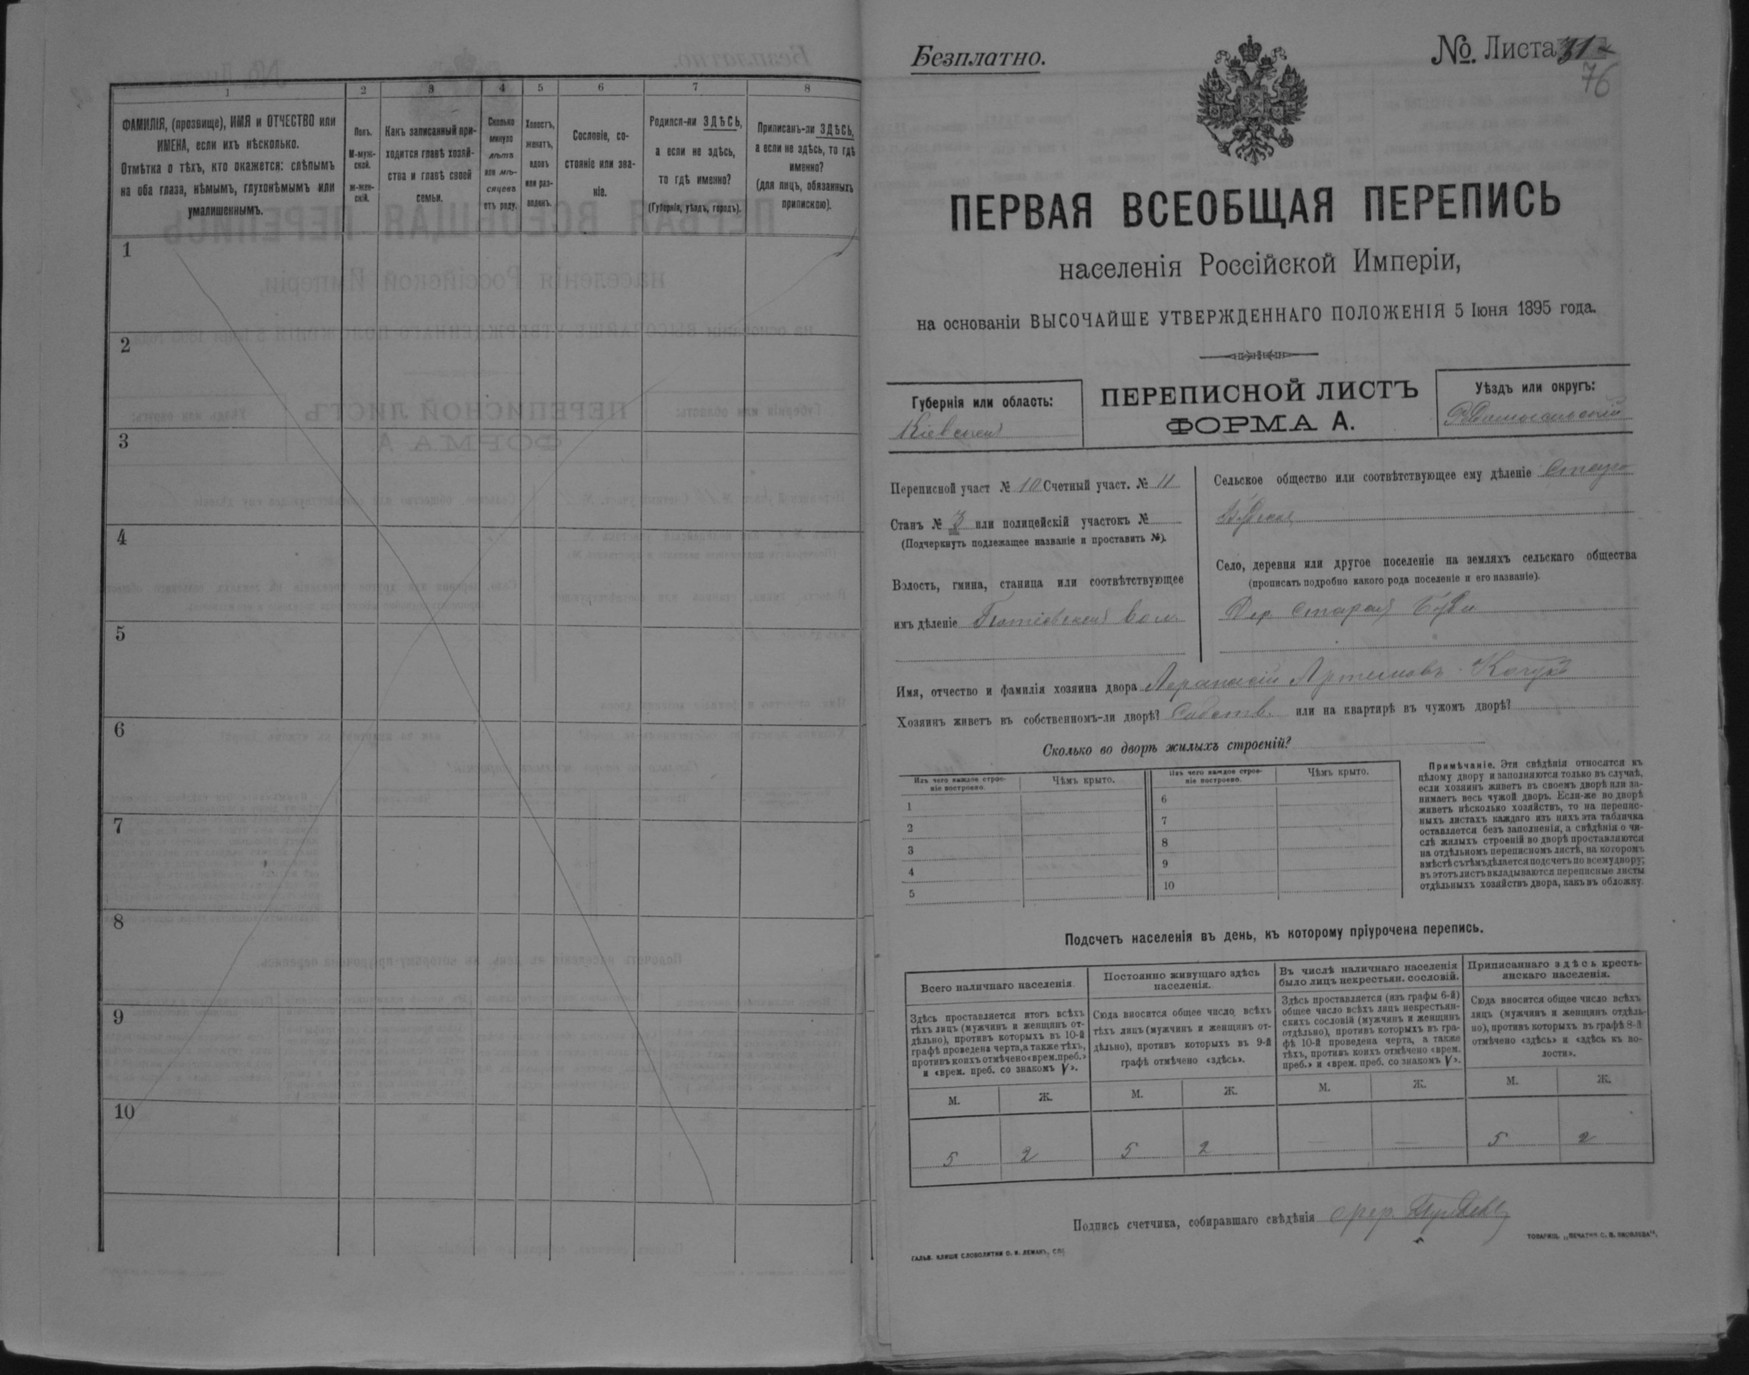 1
2
3
4
5
6
7
8
ФАМИЛІЯ, (прозвище), ИМЯ и ОТЧЕСТВО или
ИМЕНА, если ихъ нѣсколько.
Отмѣтка о тѣхъ, кто окажется: слѣпымъ
на оба глаза, нѣмымъ, глухонѣмымъ или
умалишеннымъ.
Полъ.
М-муж-
ской.
ж-жен-
скій.
Какъ записанный при-
ходится главѣ хозяй-
ства и главѣ своей
семьи.
Сколько
минуло
лѣтъ
или мѣ-
сяцевъ
отъ роду.
Холостъ,
женатъ,
вдовъ
или раз-
веденъ.
Сословіе, со-
стояніе или зва-
ніе.
Родился-ли ЗДѢСЬ,
а если не здѣсь,
то гдѣ именно?
(Губернія, уѣздъ, городъ).
Приписанъ-ли ЗДѢСЬ,
а если не здѣсь, то гдѣ
именно?
(для лицъ, обязанныхъ
припискою).
1
2
3
4
5
6
7
8
9
10
Безплатно.
№. Листа
76
ПЕРВАЯ ВСЕОБЩАЯ ПЕРЕПИСЬ
населенія Россійской Имперіи,
на основаніи ВЫСОЧАЙШЕ УТВЕРЖДЕННАГО ПОЛОЖЕНІЯ 5 Іюня 1895 года.
Губернія или область:
Кіевская
ПЕРЕПИСНОЙ ЛИСТЪ
ФОРМА А.
Уѣздъ или округъ:
Радомысльскій
Переписной участ № 10 Счетный участ. № 11
Станъ № 3 или полицейскій участокъ №
(Подчеркнуть подлежащее названіе и проставить №).
Волость, гмина, станица или соотвѣтствующее
имъ дѣленіе вол.
Сельское общество или соотвѣтствующее ему дѣленіе Старо
Будская
Село, деревня или другое поселеніе на земляхъ сельскаго общества
(прописать подробно какого рода поселеніе и его названіе).
Дер. Старая Буда
Имя, отчество и фамилія хозяина двора Афанасій Артемовъ
Хозяинъ живетъ въ собственномъ-ли дворѣ? Собств. или на квартирѣ въ чужомъ дворѣ?
Сколько во дворѣ жилыхъ строеній?
Изъ чего каждое строе-
ніе построено.
Чѣмъ крыто.
Изъ чего каждое строе-
ніе построено.
Чѣмъ крыто.
1
2
3
4
5
6
7
8
9
10
Примѣчаніе. Эти свѣдѣнія относятся къ
цѣлому двору и заполняются только въ случаѣ,
если хозяинъ живетъ въ своемъ дворѣ или за-
нимаетъ весь чужой дворъ. Если-же во дворѣ
живетъ нѣсколько хозяйствъ, то на перепис-
ныхъ листахъ каждаго изъ нихъ эта табличка
оставляется безъ заполненія, а свѣдѣнія о чи-
слѣ жилыхъ строеній во дворѣ проставляются
на отдѣльномъ переписномъ листѣ, на которомъ
вмѣстѣ съ тѣмъ дѣлается подсчетъ по всему двору;
въ этотъ листъ вкладываются переписные листы
отдѣльныхъ хозяйствъ двора, какъ въ обложку.
Подсчетъ населенія въ день, къ которому пріурочена перепись.
Всего наличнаго населенія.
Здѣсь проставляется итогъ всѣхъ
тѣхъ лицъ (мужчинъ и женщинъ от-
дѣльно), противъ которыхъ въ 10-й
графѣ проведена черта, а также тѣхъ,
противъ коихъ отмѣчено «врем. преб.»
и «врем. преб. со знакомъ V».
Постоянно живущаго здѣсь
населенія.
Сюда вносится общее число всѣхъ
тѣхъ лицъ (мужчинъ и женщинъ от-
дѣльно), противъ которыхъ въ 9-й
графѣ отмѣчено «здѣсь».
Въ числѣ наличнаго населенія
было лицъ некрестьян. сословій.
Здѣсь проставляется (изъ графы 6-й)
общее число всѣхъ лицъ некрестьян-
скихъ сословій (мужчинъ и женщинъ
отдѣльно), противъ которыхъ въ гра-
фѣ 10-й проведена черта, а также
тѣхъ, противъ коихъ отмѣчено «врем.
преб.» и «врем. преб. со знакомъ V».
Приписаннаго здѣсь кресть-
янскаго населенія.
Сюда вносится общее число всѣхъ
лицъ (мужчинъ и женщинъ отдѣль-
но), противъ которыхъ въ графѣ 8-й
отмѣчено «здѣсь» и «здѣсь въ во-
лости».
М. Ж. М. Ж. М. Ж. М. Ж.
5 2 5 2 — — 5 2
Подпись счетчика, собиравшаго свѣдѣнія
ГАЛЬВ. КЛИШЕ СЛОВОЛИТНИ О. И. ЛЕМАНЪ, СПБ.
ТОВАРИЩ. „ПЕЧАТНЯ С. П. ЯКОВЛЕВА“.